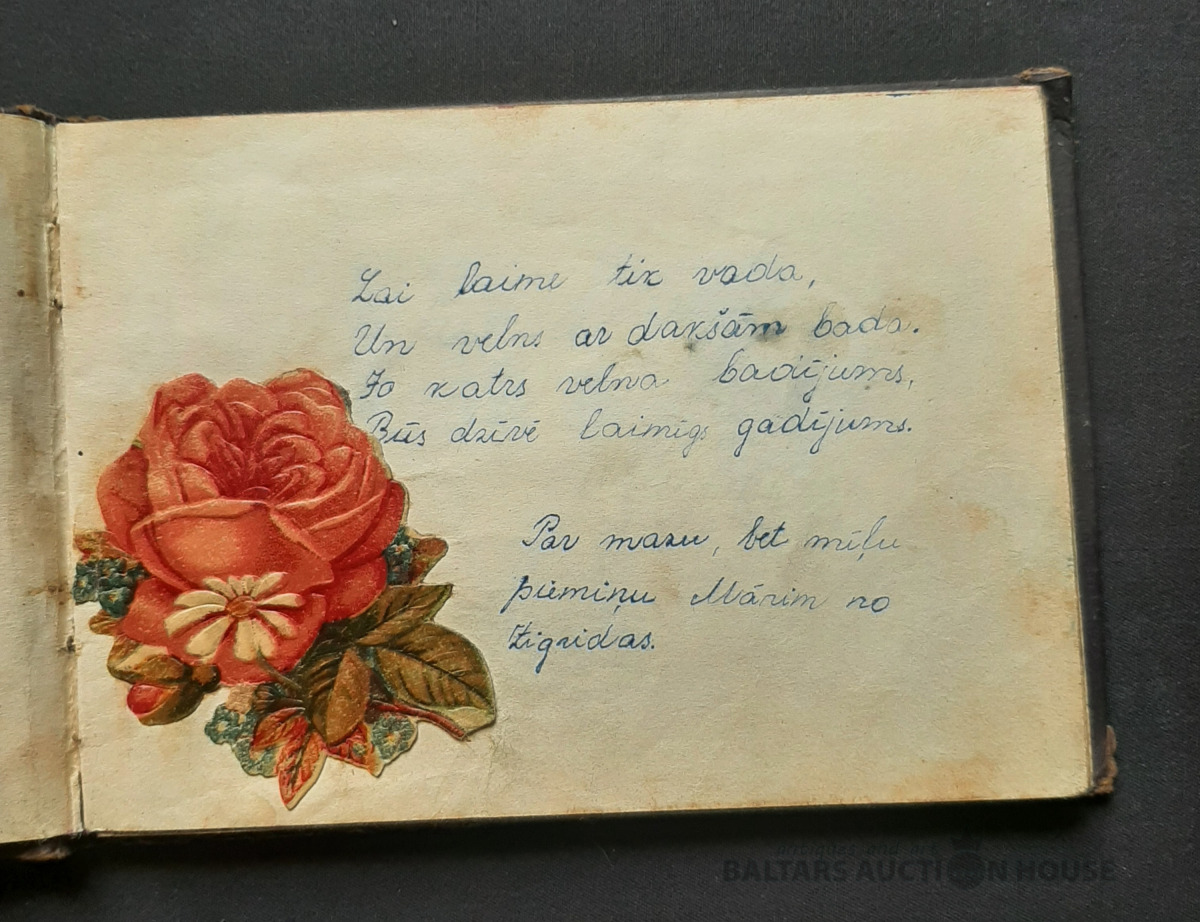 Lai laime tik vada,
Un velns ar dakšām bada.
Jo katrs velna badījums,
Būs dzīvē laimīgs gadījums.
Par mazu, bet mīļu
piemiņu Mārim no
Zigrīdas.
BALTARS AUCTION HOUSE